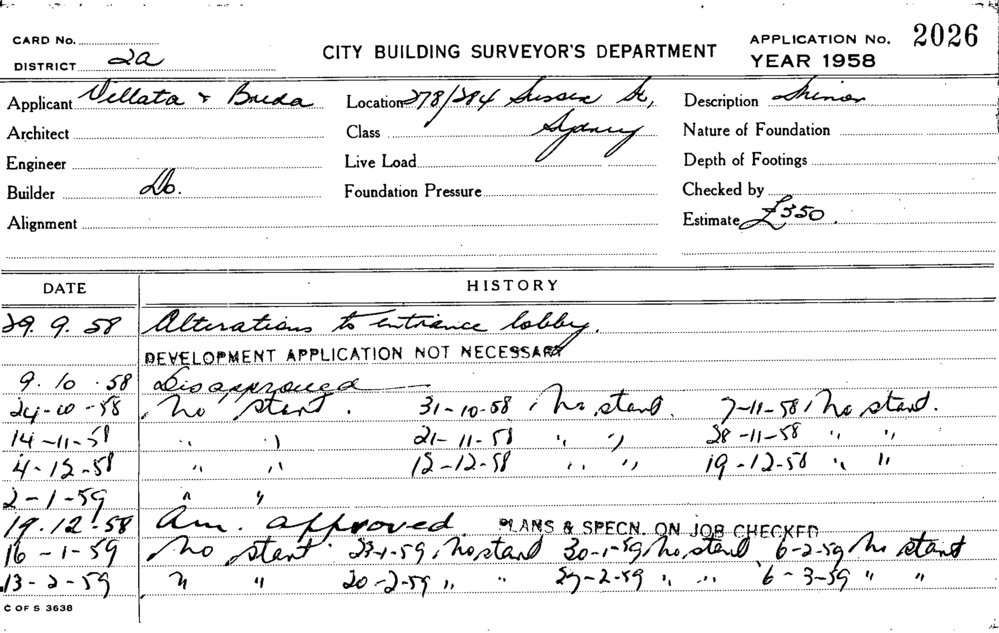 CARD No.
CITY BUILDING SURVEYOR'S DEPARTMENT
APPLICATION No. 2026
DISTRICT 2a
YEAR 1958
Applicant Vellata & Breda Location 278/284 Sussex St, Description Minor
Architect Class Sydney Nature of Foundation
Engineer Live Load Depth of Footings
Builder Do. Foundation Pressure Checked by
Alignment Estimate £350.
DATE HISTORY
29. 9. 58 Alterations to entrance lobby.
DEVELOPMENT APPLICATION NOT NECESSARY
9. 10. 58 Disapproved
24-10-58 No start. 31-10-58, No start. 7-11-58, No start.
14-11-58 " " 21-11-58 " " 28-11-58 " "
4-12-58 " " 12-12-58 " " 19-12-58 " "
2-1-59 " "
19.12.58 Am. approved PLANS & SPECN. ON JOB CHECKED
16-1-59 No start 23-1-59, No start 30-1-59, No start 6-2-59 No start
13-2-59 " " 20-2-59 " " 27-2-59 " " 6-3-59 " "
C OF S 3638